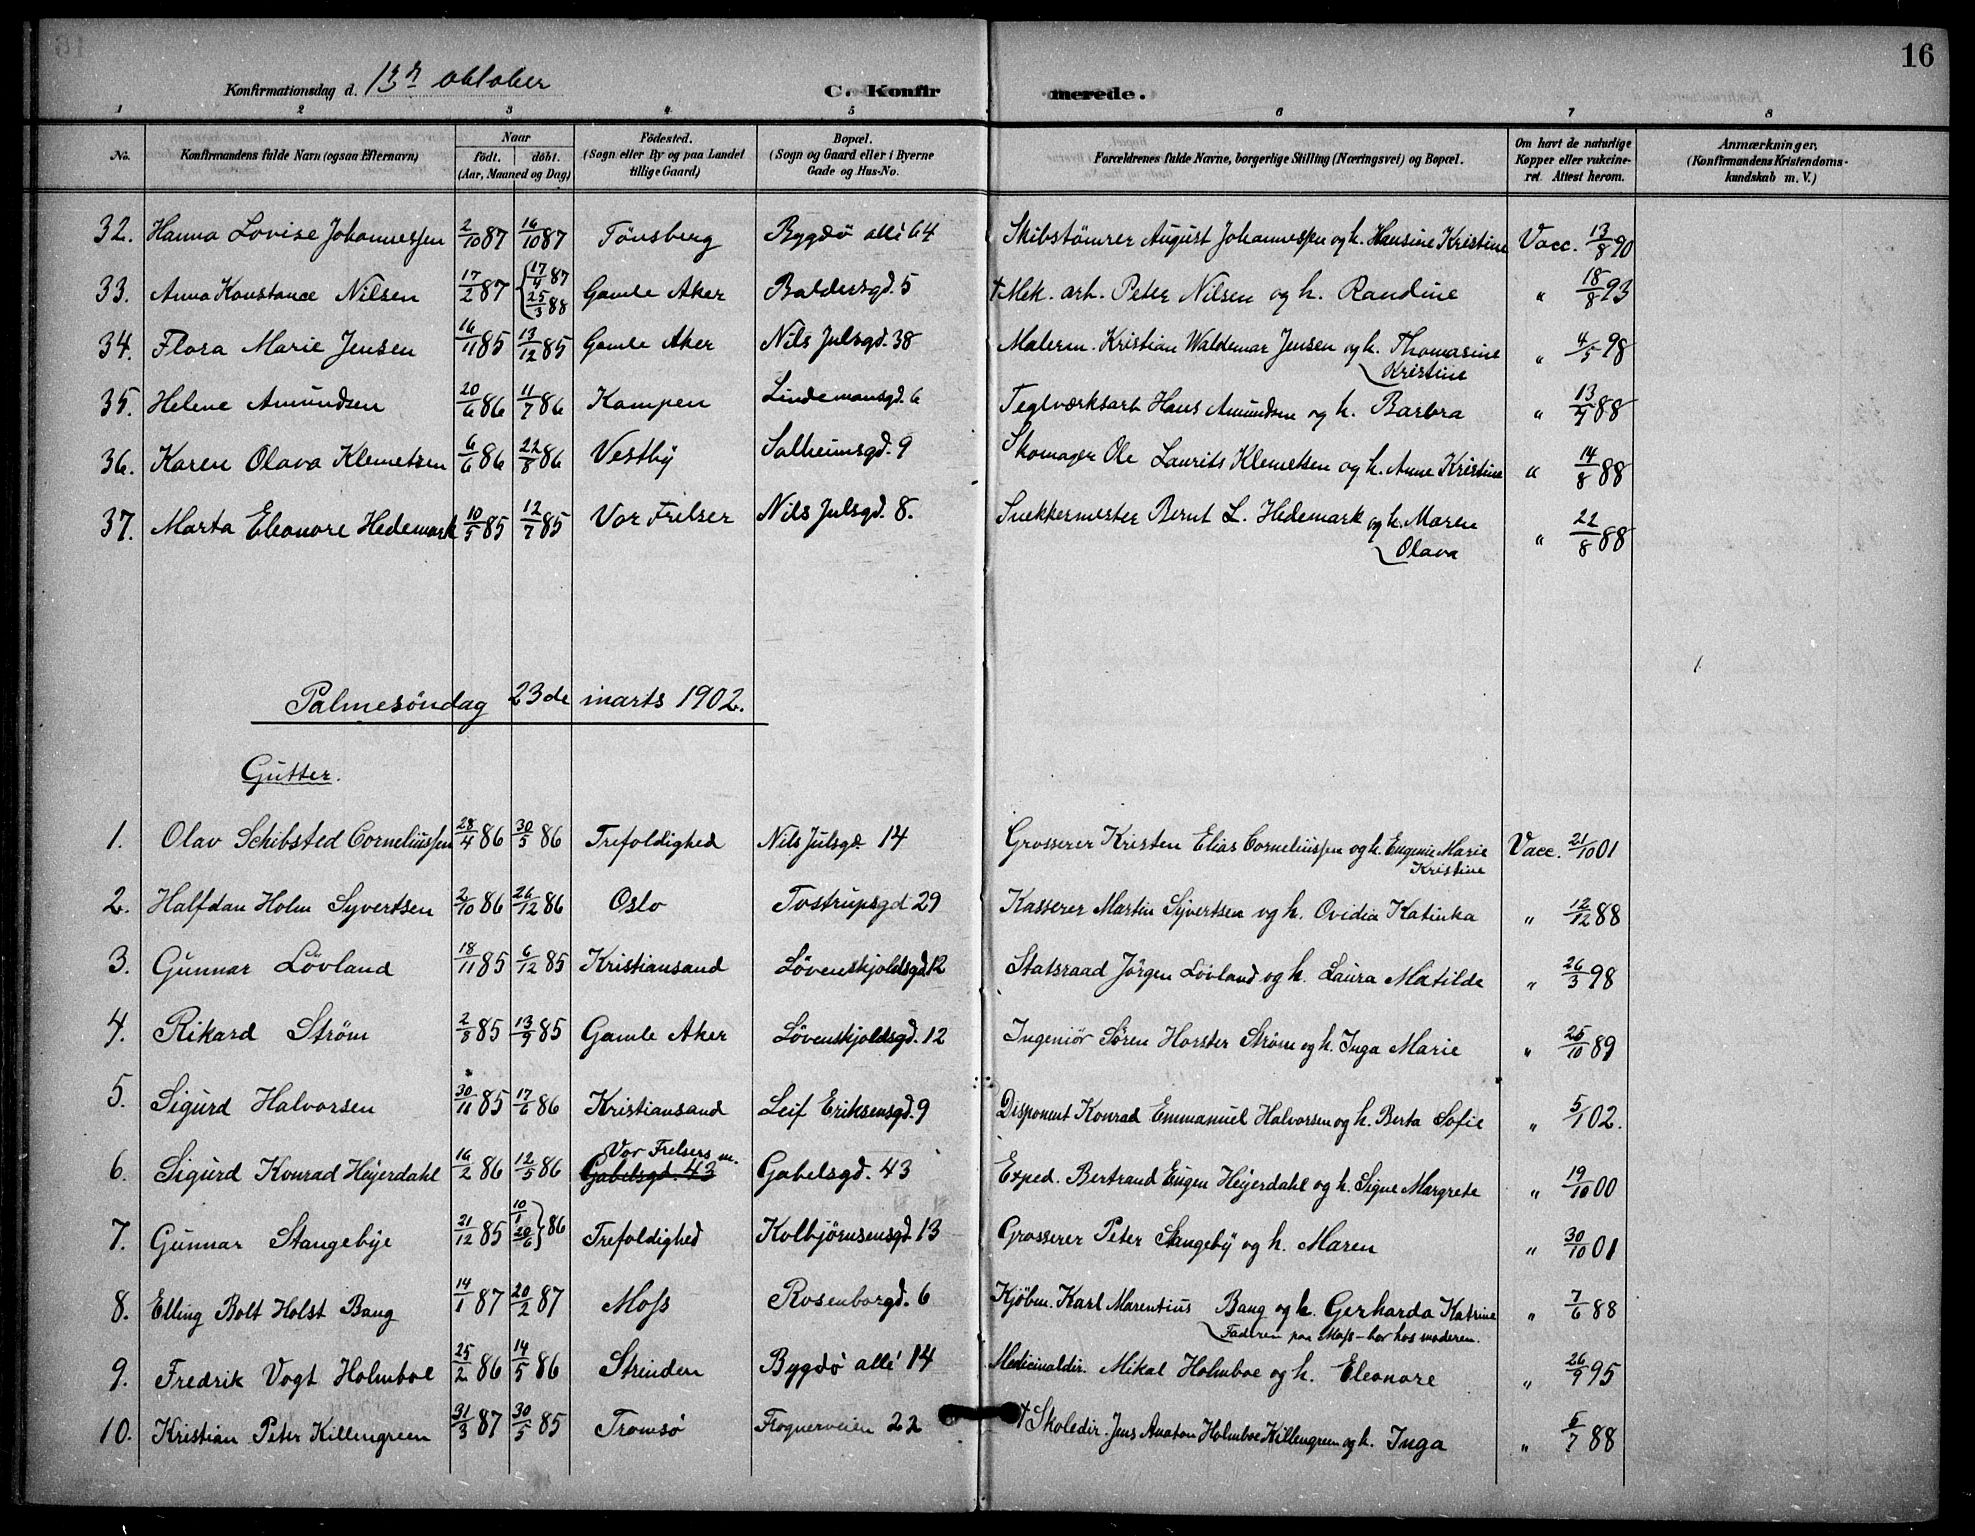 16
Konfirmationsdag d. 13de oktober C. Konfir merede.
1 2 3 4 5 6 7 8
No. Konfirmandens fulde Navn (ogsaa Efternavn) Naar født. døbt. (Aar, Maaned og Dag) Fødested. (Sogn eller By og paa Landet tillige Gaard) Bopæl. (Sogn og Gaard eller i Byerne Gade og Hus-No. Forældrenes fulde Navne, borgerlige Stilling (Næringsvei) og Bopæl. Om havt de naturlige Kopper eller vakcineret. Attest herom. Anmærkninger. (Konfirmandens Kristendomskundskab m. V.)
32. Hanna Lovise Johannessen 2/10 87 16/10 87 Tönsberg Bygdø allé 64 Skibstømrer August Johannessen og h. Hansine Kristine Vacc. 13/8 90
33. Anna Konstance Nilsen 17/2 87 {17/4 87 25/3 88 Gamle Aker Baldersgd. 5 † Mek. arb. Peter Nilsen og h. Randine " 18/8 93
34. Flora Marie Jensen 16/11 85 13/12 85 Gamle Aker Nils Julsgd. 38 Malerm. Kristian Waldemar Jensen og h. Thomasine Kristine " 4/5 98
35. Helene Amundsen 20/6 86 11/7 86 Kampen Lindemansgd. 6 Teglværksarb. Hans Amundsen og h. Barbra " 13/9 88
36. Karen Olava Klemetsen 6/6 86 22/8 86 Vestby Solheimsgd. 9 Skomager Ole Laurits Klemetsen og h. Anne Kristine " 14/8 88
37. Marta Eleonore Hedemark 10/5 85 12/7 85 Vor Frelser Nils Julsgd. 8. Snekkermester Bernt L. Hedemark og h. Maren Olava " 22/8 88
Palmesöndag 23de marts 1902.
Gutter.
1. Olav Schibsted Corneliussen 28/4 86 30/5 86 Trefoldighed Nils Julsgd. 14 Grosserer Kristen Elias Corneliussen og h. Eugenie Marie Kristine Vacc. 21/10 01
2. Halfdan Holm Syvertsen 2/10 86 26/12 86 Oslo Tostrupsgd 29 Kasserer Martin Syvertsen og h. Ovidia Katinka " 12/12 88
3. Gunnar Lövland 18/11 85 6/12 85 Kristiansand Løvenskjoldsgd. 12 Statsraad Jörgen Lövland og h. Laura Matilde " 26/3 98
4. Rikard Strøm 2/8 85 13/9 85 Gamle Aker Løvenskjoldsgd. 12 Ingeniör Søren Horster Strøm og h. Inga Marie " 25/10 89
5. Sigurd Halvorsen 30/11 85 17/6 86 Kristiansand Leif Eriksensgd. 9 Disponent Konrad Emmanuel Halvorsen og h. Berta Sofie " 5/1 02.
6. Sigurd Konrad Heyerdahl 16/2 86 12/5 86 Vor Frelsers m. Gabelsgd. 43 Gabelsgd. 43 Exped. Bertrand Eugen Heyerdahl og h. Signe Margrete " 19/10 00
7. Gunnar Stangebye 21/12 85 10/1 20/6} 86 Trefoldighed Kolbjørnsensgd 13 Grosserer Peter Stangeby og h. Maren " 30/10 01
8. Elling Bolt Holst Bang 14/1 87 20/2 87 Moss Rosenborgd. 6 Kjøbm. Karl Marentius Bang og h. Gerharda Katrine " 7/6 88
Faderen paa Moss – bor hos moderen.
9. Fredrik Vogt Holmboe 25/2 86 14/5 86 Strinden Bygdö allé 14 Medicinaldir. Mikal Holmboe og h. Eleonore " 26/9 95
10. Kristian Peter Killengreen 31/3 87 30/5 85 Tromsö Frognerveien 22 † Skoledir. Jens Anaton Holmboe Killengreen og h. Inga " 6/7 88